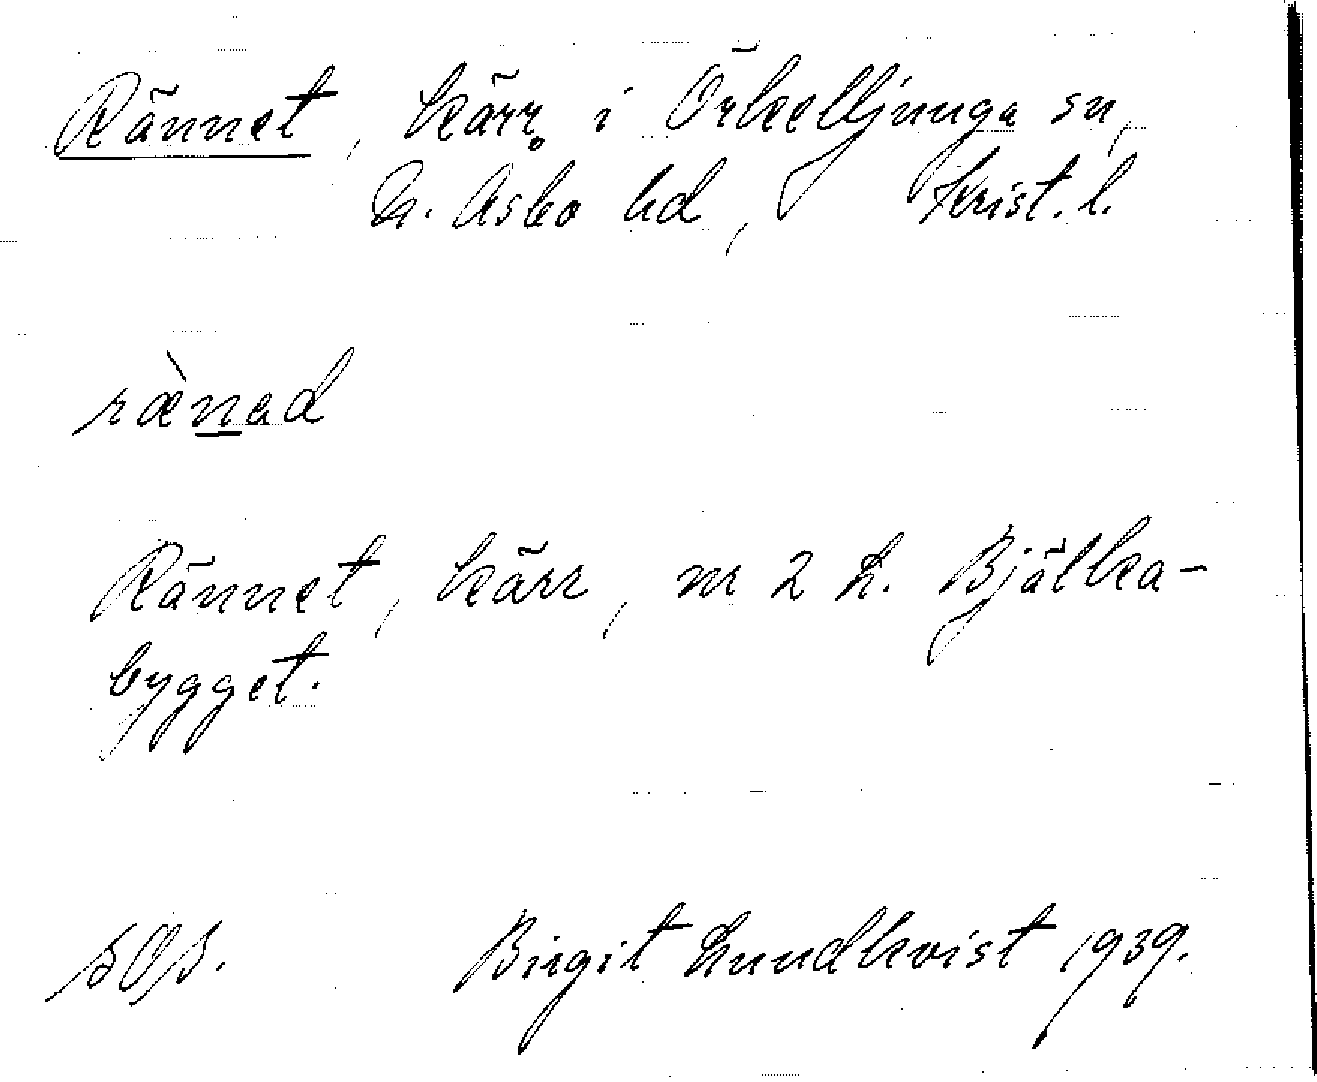 Rännet, kärr i Örkelljunga sn,
N. Åsbo hd, Krist. l.
rænad
Rännet, kärr, nr 2 L. Bjälka-
bygget.
SOS. Birgit Lundkvist 1939.